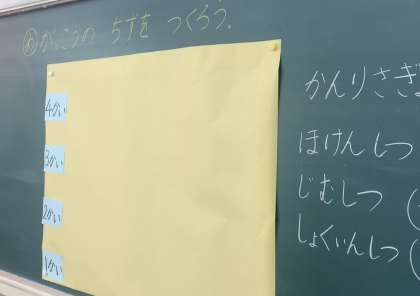 めがっこうの ちずを つくろう。
4かい
3かい
2かい
1かい
かんりさぎ
ほけんしつ
じむしつ
しょくいんしつ